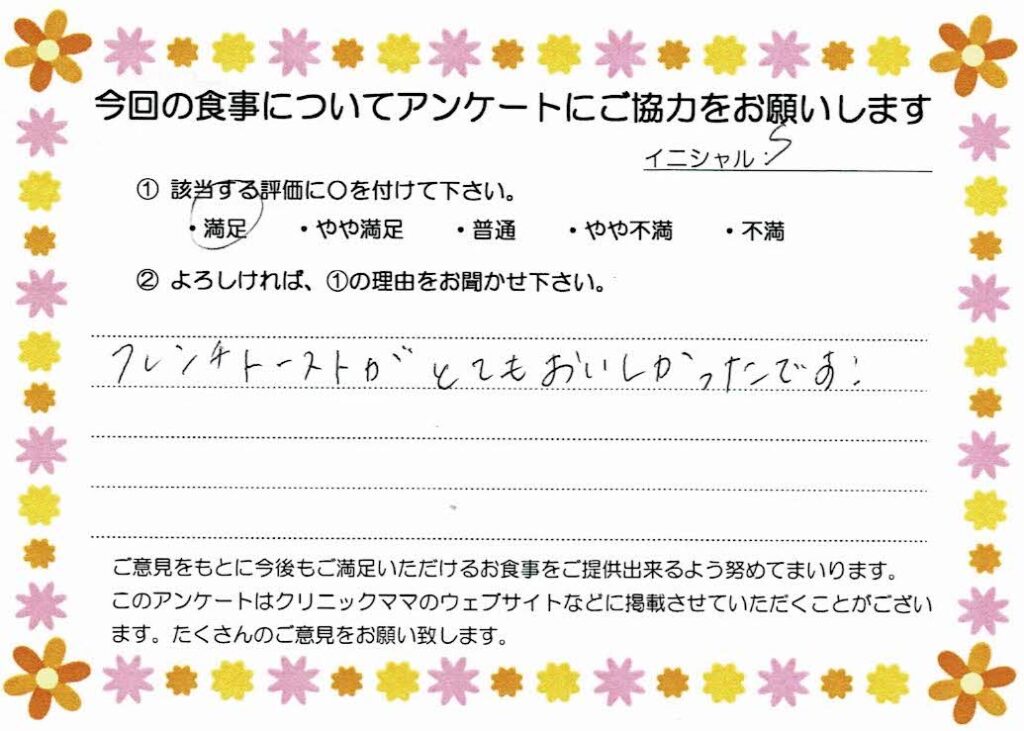 今回の食事についてアンケートにご協力をお願いします
イニシャル:S
① 該当する評価に〇を付けて下さい。
・満足 ・やや満足 ・普通 ・やや不満 ・不満
② よろしければ、①の理由をお聞かせ下さい。
フレンチトーストがとてもおいしかったです!
ご意見をもとに今後もご満足いただけるお食事をご提供出来るよう努めてまいります。
このアンケートはクリニックママのウェブサイトなどに掲載させていただくことがござい
ます。たくさんのご意見をお願い致します。